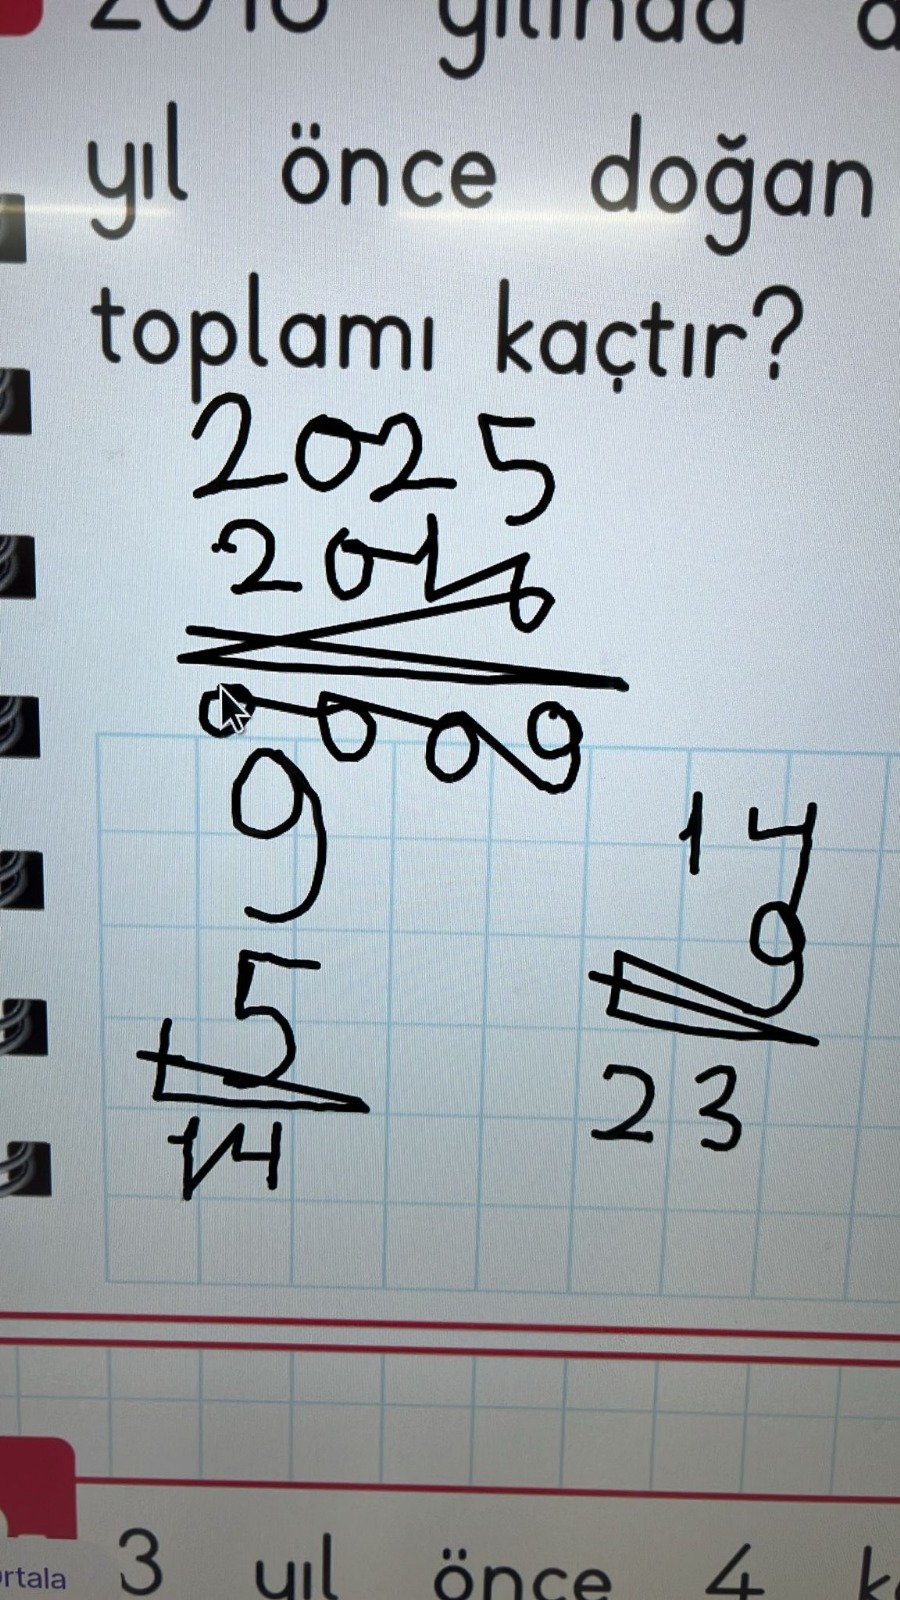 yılında
yıl önce doğan
toplamı kaçtır?
2025
2016
0009
9
5
14
14
9
23
3 yıl önce 4
rtala